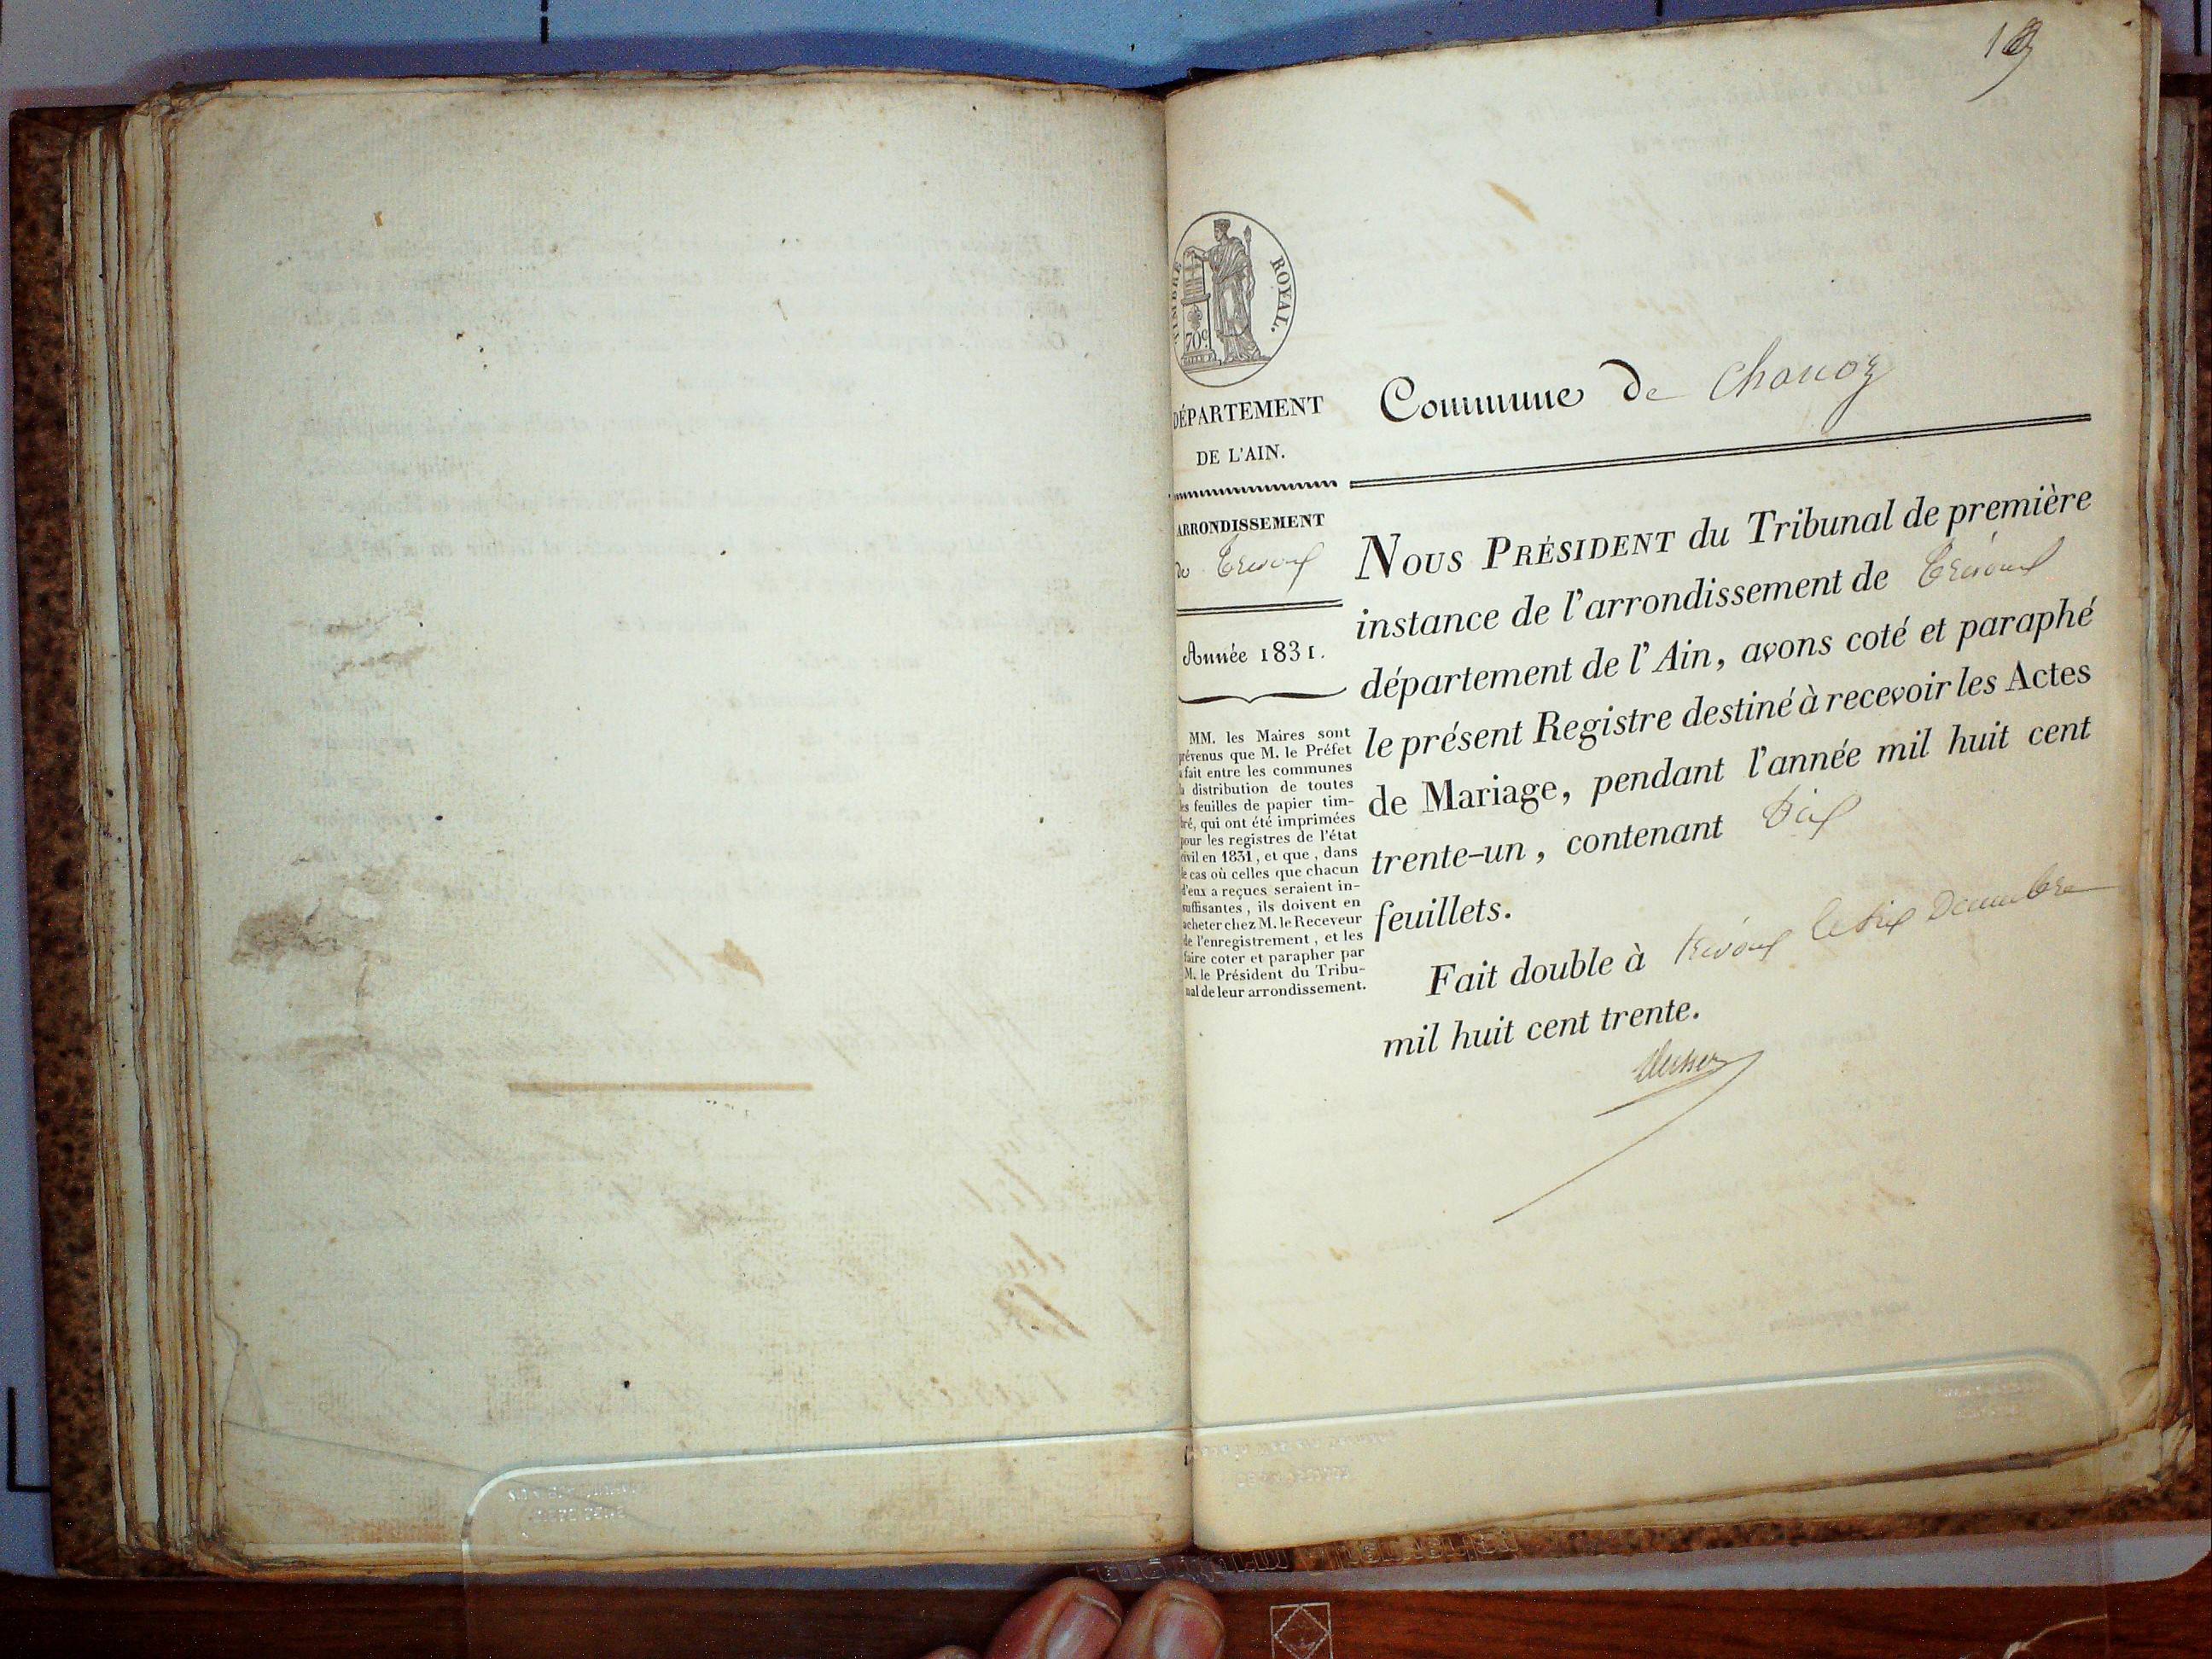 TIMBRE ROYAL.
70c
DÉPARTEMENT
DE L'AIN.
ARRONDISSEMENT
de Trévoux
Année 1831.
MM. les Maires sont
prévenus que M. le Préfet
a fait entre les communes
la distribution de toutes
les feuilles de papier tim-
bré, qui ont été imprimées
pour les registres de l'état
civil en 1831, et que, dans
le cas où celles que chacun
d'eux a reçues seraient in-
suffisantes, ils doivent en
acheter chez M. le Receveur
de l'enregistrement, et les
faire coter et parapher par
M. le Président du Tribu-
nal de leur arrondissement.
Commune de Chanoz
NOUS PRÉSIDENT du Tribunal de première
instance de l'arrondissement de Trévoux
département de l'Ain, avons coté et paraphé
le présent Registre destiné à recevoir les Actes
de Mariage, pendant l'année mil huit cent
trente-un, contenant Six
feuillets.
Fait double à Trévoux le dix Décembre
mil huit cent trente.